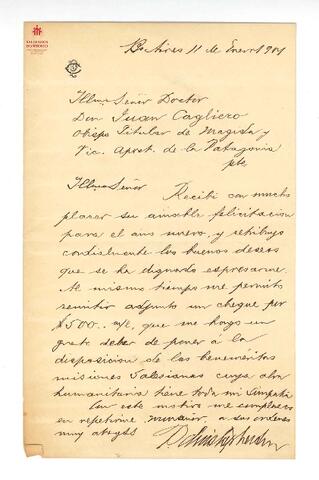 Bs Aires 11 de Enero 1901
Illmo Señor Doctor
Don Juan Cagliero
Obispo Titular de Magida y
Vic. Apost. de la Patagonia
pte
Illmo Señor
Recibí con mucho
placer su amable felicitacion
para el año nuevo, y retribuyo
cordialmente los buenos deseos
que se ha dignado espresarme.
Al mismo tiempo me permito
remitir adjunto un cheque por
$500.. m/l, que me hago un
grato deber de poner á la
disposicion de las benemeritas
misiones Salesianas cuya obra
humanitaria tiene toda mi simpatia
Con este motivo me complazco
en repetirme, a sus ordenes
muy